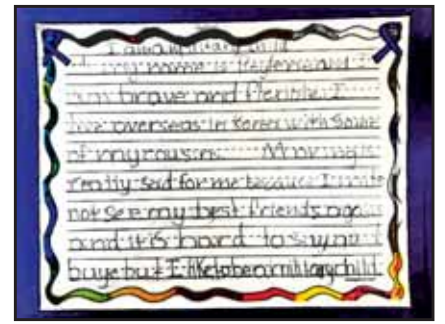 I am a military child
my name is Kaylen and I
am brave and flexible I
live overseas in Korea with some
of my cousins. Moving is
really sad for me because I mite
not see my best friends again
and it is hard to say
buye but I like to be a military child